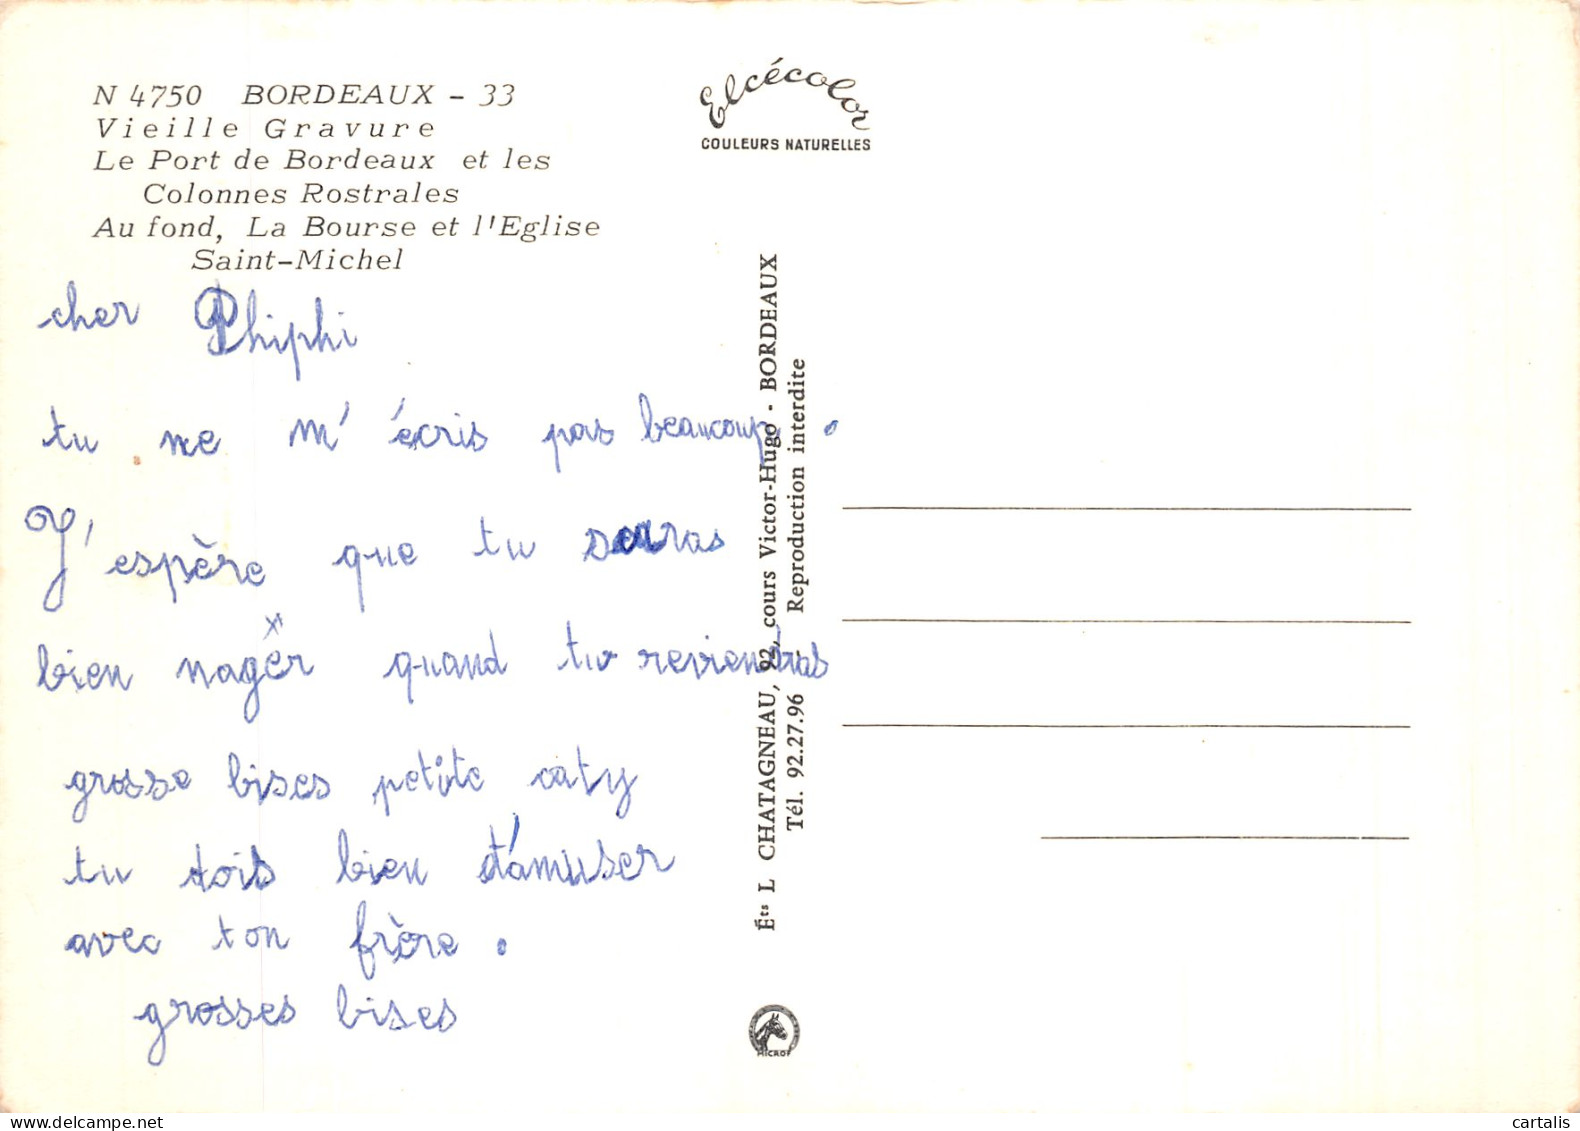 N 4750 BORDEAUX - 33
Vieille Gravure
Le Port de Bordeaux et les
Colonnes Rostrales
Au fond, La Bourse et l'Eglise
Saint-Michel
cher Phiphi
tu ne m'écris pas beaucoup.
J'espère que tu sauras
bien nager quand tu reviendras
grosse bises petite caty
tu dois bien t'amuser
avec ton frère.
grosses bises
Elcécolor
COULEURS NATURELLES
Éts L CHATAGNEAU, 92, cours Victor-Hugo - BORDEAUX
Tél. 92.27.96 - Reproduction interdite
MICROF
delcampe.net
cartalis